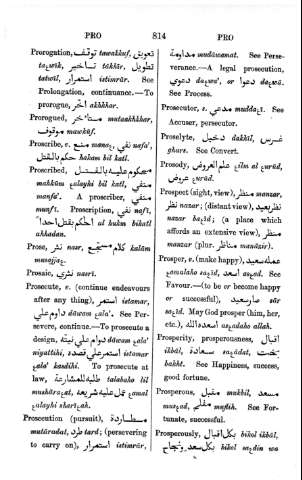 PRO 814 PRO
Prorogation, توقف tawakkuf, تعويق
taɛwīk, تاخير tākhīr, تطويل
tatwīl, استمرار istimrār. See
Prolongation, continuance.—To
prorogue, اخر akhkhar.
Prorogued, متاخر mutaakhkhar,
موقوف mawkūf.
Proscribe, v. منع manaɛ, نفى nafa',
حكم بالقتل hakam bil katl.
Proscribed, محكوم عليه بالقتل
mahkūm ɛalayhi bil katl, منفى
manfa'. A proscriber,
manfī. Proscription, نفى nafī,
al hukm bikatl
ahhadan.
Prose, نثر nasr, كلام kalām
musajjaɛ.
Prosaic, نثرى nasrī.
Prosecute, v. (continue endeavours
after any thing), استمر istamar,
دوام على dāwam ɛala'. See Per-
severe, continue.—To prosecute a
design, دوام على نيته dāwam ɛala'
niyattihi, استمر على قصده istamar
ɛala' kasdihi. To prosecute at
law, طلبه للمشارعة talabaho lil
mushāraɛat, عمل عليه شريعة ɛamal
ɛalayhi sharīɛah.
Prosecution (pursuit), مطاردة
mutāradat, طرد tard; (persevering
to carry on), استمرار istimrār,
مداومة mudāwamat. See Perse-
verance.—A legal prosecution,
دعوى daɛwa', or دعوة daɛwā.
See Process.
Prosecutor, s. مدعى muddaɛī. See
Accuser, persecutor.
Proselyte, دخيل dakhīl, غرس
ghars. See Convert.
Prosody, علم العروض ɛilm al ɛurūd,
عروض ɛurūd.
Prospect (sight, view), منظر manzar,
نظر nazar; (distant view), نظر بعيد
nazar baɛīd; (a place which
affords an extensive view), منظر
manzar (plur. مناظر manāzir).
Prosper, v. (make happy), عمله سعيد
ɛamalaho saɛīd, اسعد asɛad. See
Favour.—(to be or become happy
or successful), صار سعيد sār
saɛīd. May God prosper (him, her,
etc.), اسعده الله asɛadaho allah.
Prosperity, prosperousness, اقبال
ikbāl, سعادة saɛādat, بخت
bakht. See Happiness, success,
good fortune.
Prosperous, مقبل makbil, مسعد
musɛad, مفلح muflih. See For-
tunate, successful.
Prosperously, بكل اقبال bikol ikbāl,
بكل سعد ونجاح bikol saɛdin wa